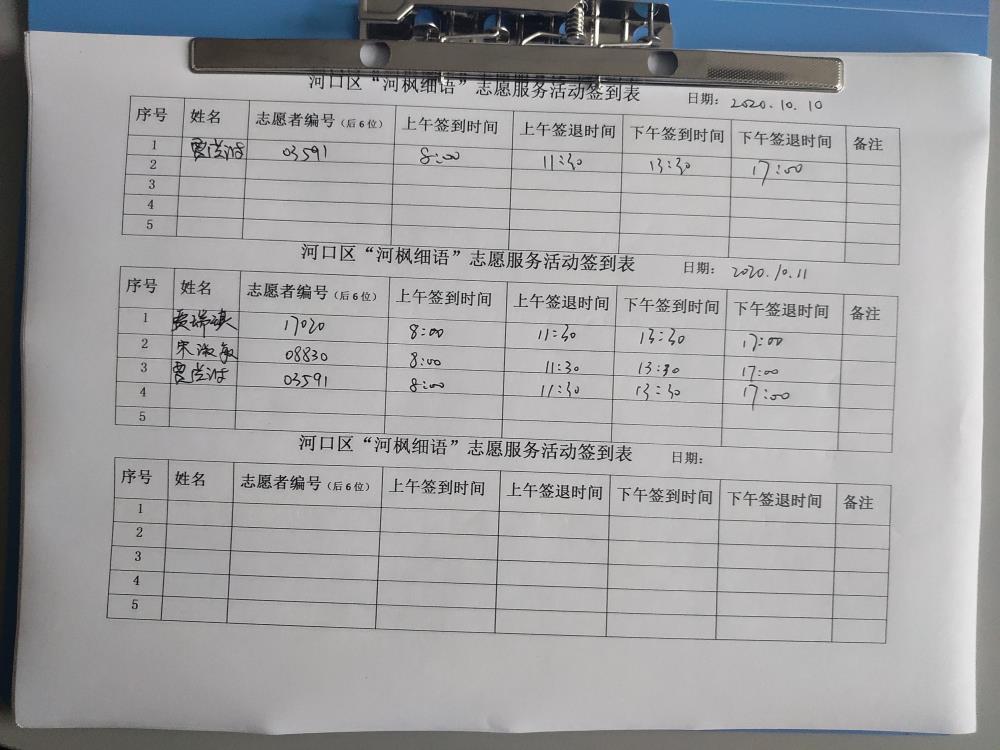 河口区“河枫细语”志愿服务活动签到表 日期：2020.10.10
序号 姓名 志愿者编号（后6位） 上午签到时间 上午签退时间 下午签到时间 下午签退时间 备注
1 03591 8:00 11:30 13:30 17:00
2
3
4
5
河口区“河枫细语”志愿服务活动签到表 日期：2020.10.11
序号 姓名 志愿者编号（后6位） 上午签到时间 上午签退时间 下午签到时间 下午签退时间 备注
1 贾瑞琪 17020 8:00 11:30 13:30 17:00
2 宋淑敏 08830 8:00 11:30 13:30 17:00
3 03591 8:00 11:30 13:30 17:00
4
5
河口区“河枫细语”志愿服务活动签到表 日期：
序号 姓名 志愿者编号（后6位） 上午签到时间 上午签退时间 下午签到时间 下午签退时间 备注
1
2
3
4
5